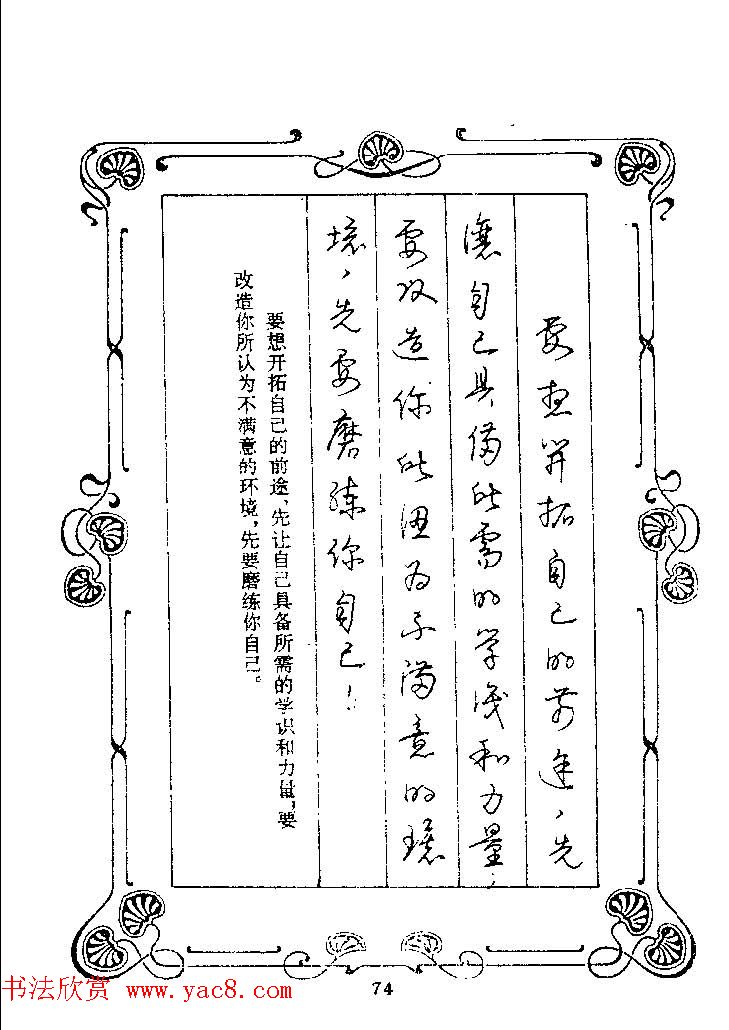 要想开拓自己的前途、先
讓自己具備所需的学識和力量；
要改造你所認为不满意的環
境、先要磨练你自己！
要想开拓自己的前途、先让自己具备所需的学识和力量；要
改造你所认为不满意的环境，先要磨练你自己。
74
书法欣赏 www.yac8.com